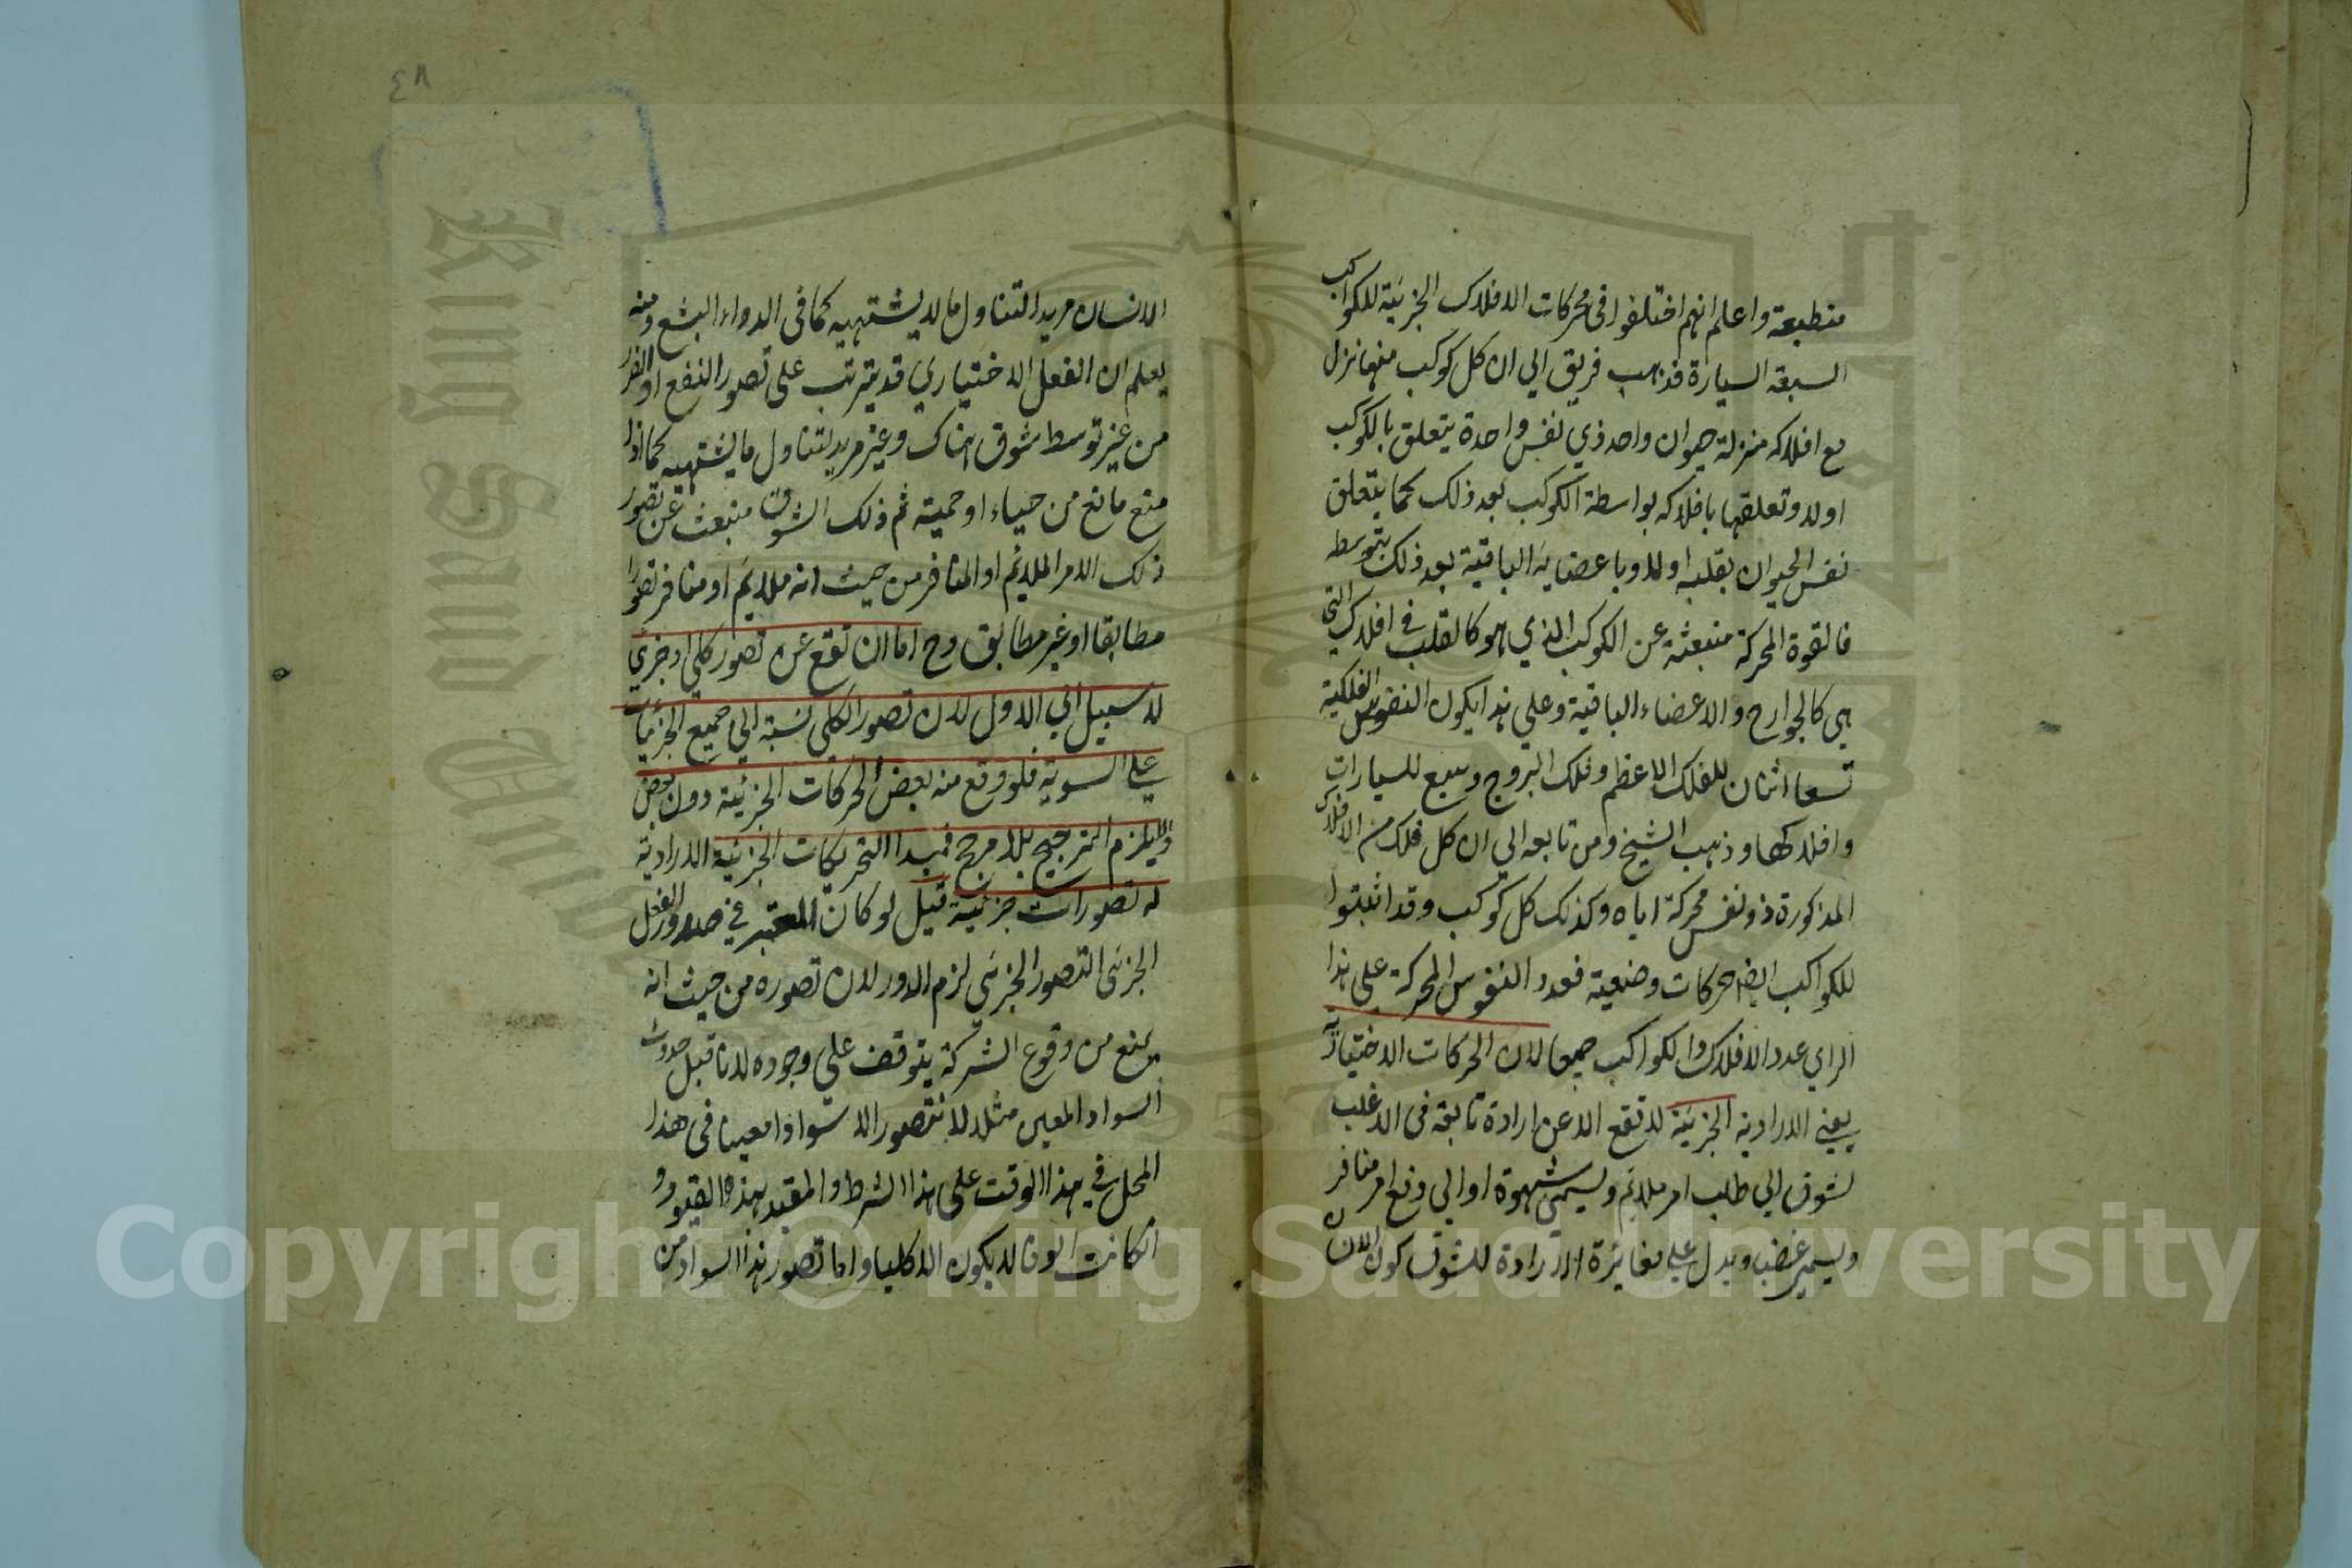 منطبعة واعلم انهم اختلفوا فى محركات الافلاك الجزئية للكواكب
السبعة السيارة فذهب فريق الي ان كل كوكب منها نزل
مع افلاكه منزلة حيوان واحد ذي نفس واحدة يتعلق بالكوكب
اولا وتعلقها بافلاكه بواسطة الكوكب بعد ذلك كما يتعلق
نفس الحيوان بقلبه اولا وباعضايه الباقية بعد ذلك بتوسطه
فالقوة المحركة منبعثة عن الكوكب الذي هو كالقلب في افلاكه التى
هي كالجوارح والاعضاء الباقية وعلي هذا يكون النفوس الفلكية
تسعا اثنان للفلك الاعظم وفلك البروج وسبع للسيارات
وافلاكها وذهب الشيخ ومن تابعه الي ان كل فلك من الافلاك
المذكورة ذو نفس محركة اياه وكذلك كل كوكب وقد اثبتوا
للكواكب ايضا حركات وضعية فعدد النفوس المحركة على هذا
الراي عدد الافلاك والكواكب جميعا لان الحركات الاختيارية
يعني الارادية الجزئية لا تقع الا عن ارادة تابعة فى الاغلب
لشوق الي طلب امر ملائم ويسمى شهوة او الي دفع امر منافر
ويسمى غضبا ويدل علي مغايرة الارادة للشوق كون الانسان
٤٨
الانسان مريدا لتناول ما لا يشتهيه كما فى الدواء البشع ومنه
يعلم ان الفعل الاختياري قد يترتب على تصور النفع او الضرر
من غير توسط شوق هناك وغير مريد لتناول ما يشتهيه كما اذا
منع مانع من حياء او حمية ثم ذلك الشوق منبعث عن تصور
ذلك الامر الملائم او المنافر من حيث انه ملائم او منافر تصورا
مطابقا او غير مطابق وح اما ان تقع عن تصور كلي او جزئي
لا سبيل الي الاول لان تصور الكلي نسبته الي جميع الجزئيات
على السوية فلو وقع منه بعض الحركات الجزئية دون بعض
يلزم الترجيح بلا مرجح فمبدا التحريكات الجزئية الارادية
له تصورات جزئية قيل لو كان المعتبر في صدور الفعل
الجزئى التصور الجزئي لزم الدور لان تصوره من حيث انه
يمنع من وقوع الشركة يتوقف علي وجوده لانا قبل حدوث
السواد المعين مثلا لا نتصور الا سوادا معينا فى هذا
المحل في هذا الوقت على هذا الشرط والمقيد بهذه القيود و
انكانت الوفا لا يكون الا كليا واما تصور هذا السواد من
Copyright © King Saud University
King Saud University
1957